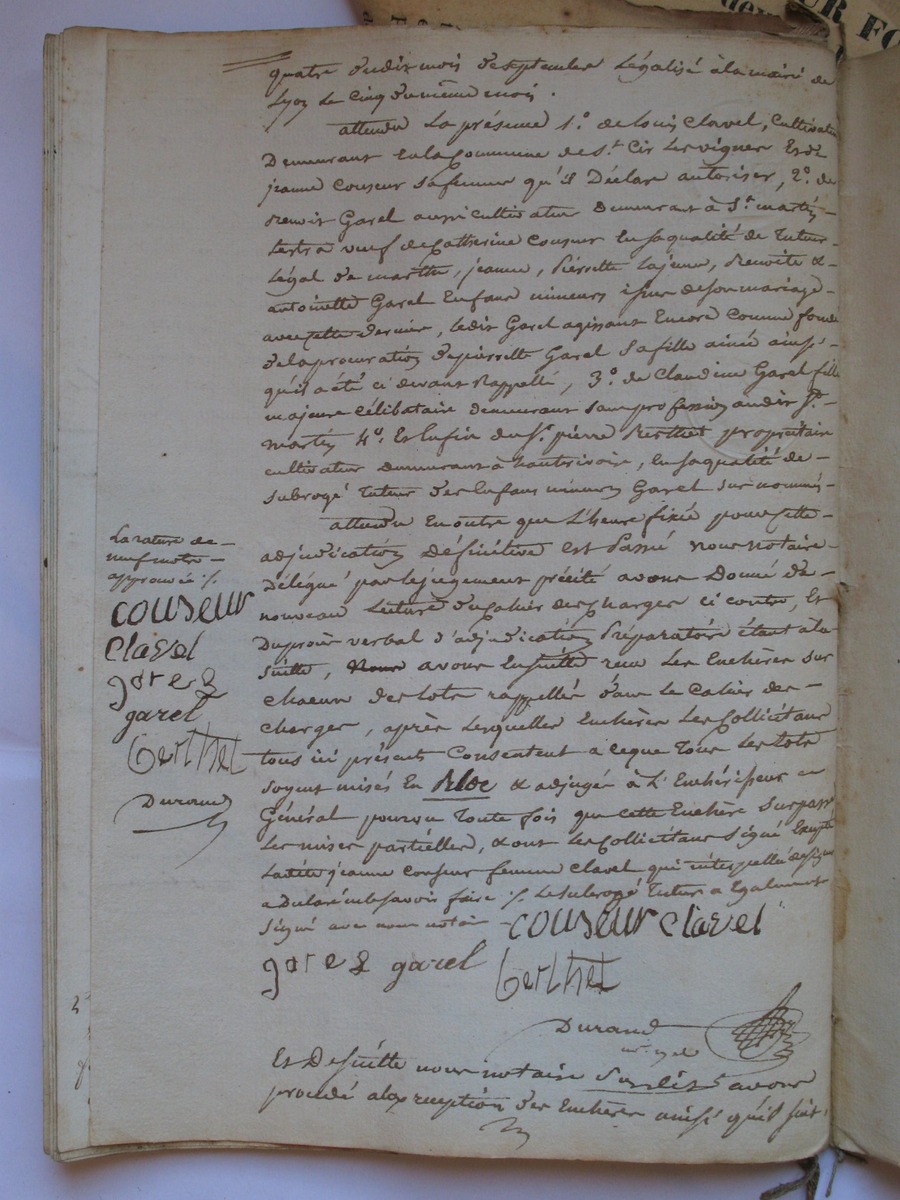 quatre dudit mois de septembre Légalisé à la mairie de
Lyon le cinq du même mois.
attendu La présence 1.º de Louis Clavel, Cultivateur
Demeurant en la Commune de S.t Cir Les vignes Et de
jeanne Couseur sa femme qu'il Déclare autoriser, 2.º de
Benoit Garel aussi cultivateur Demeurant à S.t martin
Lestra veuf de Catherine Couseur En sa qualité de Tuteur
Légal de marthe, jeanne, Pierrette Lajeune, Benoite &
antoinette Garel Enfans mineurs issus de son mariage
avec cette derniere, ledit Garel agissant Encore Comme fondé
de la procuration de pierrette Garel sa fille ainée ainsi
qu'il a été ci devant Rappellé, 3.º de Claudine Garel fille
majeure Célibataire demeurant sans profession audit S.t
martin 4.º Et Enfin du S.r pierre Berthet propriétaire
cultivateur demeurant à hauterivoire, En sa qualité de
subrogé Tuteur des Enfans mineurs Garel sur nommés
attendu En outre que L'heure fixée pour cette
adjudication Définitive est Passé nous notaire
Délégué par le jugement précité avons Donné de
nouveau Lecture du Cahier des Charges ci contre, Et
Du procès verbal d'adjudication Préparatoire étant à la
suitte, avons Ensuitte recu Les Enchères sur
chacun des lots rappellés dans le Cahier des
charges, après Lesquelles Enchères Les Collicitans
tous ici présents Consentent a ceque Tous Les Lots
soyent misés En Bloc & adjugés à L'Enchérisseur en
Général pourvu Toute fois que cette Enchère Surpasse
Les mises partielles, & ont Les Collicitans Signé Excepté
Ladite jeanne Couseur femme Clavel qui interpellée de signer
a Déclaré ne le savoir faire ./. Le subrogé Tuteur a Egalement
signé avec nous notaire
couseur clavel
garel garel Berthet
Durand
Et De suitte nous notaire Susdit avons
procédé a la reception des Enchères ainsi qu'il suit.
La rature de
neuf mots
approuvée ./.
couseur
clavel
garel
garel
Berthet
Durand